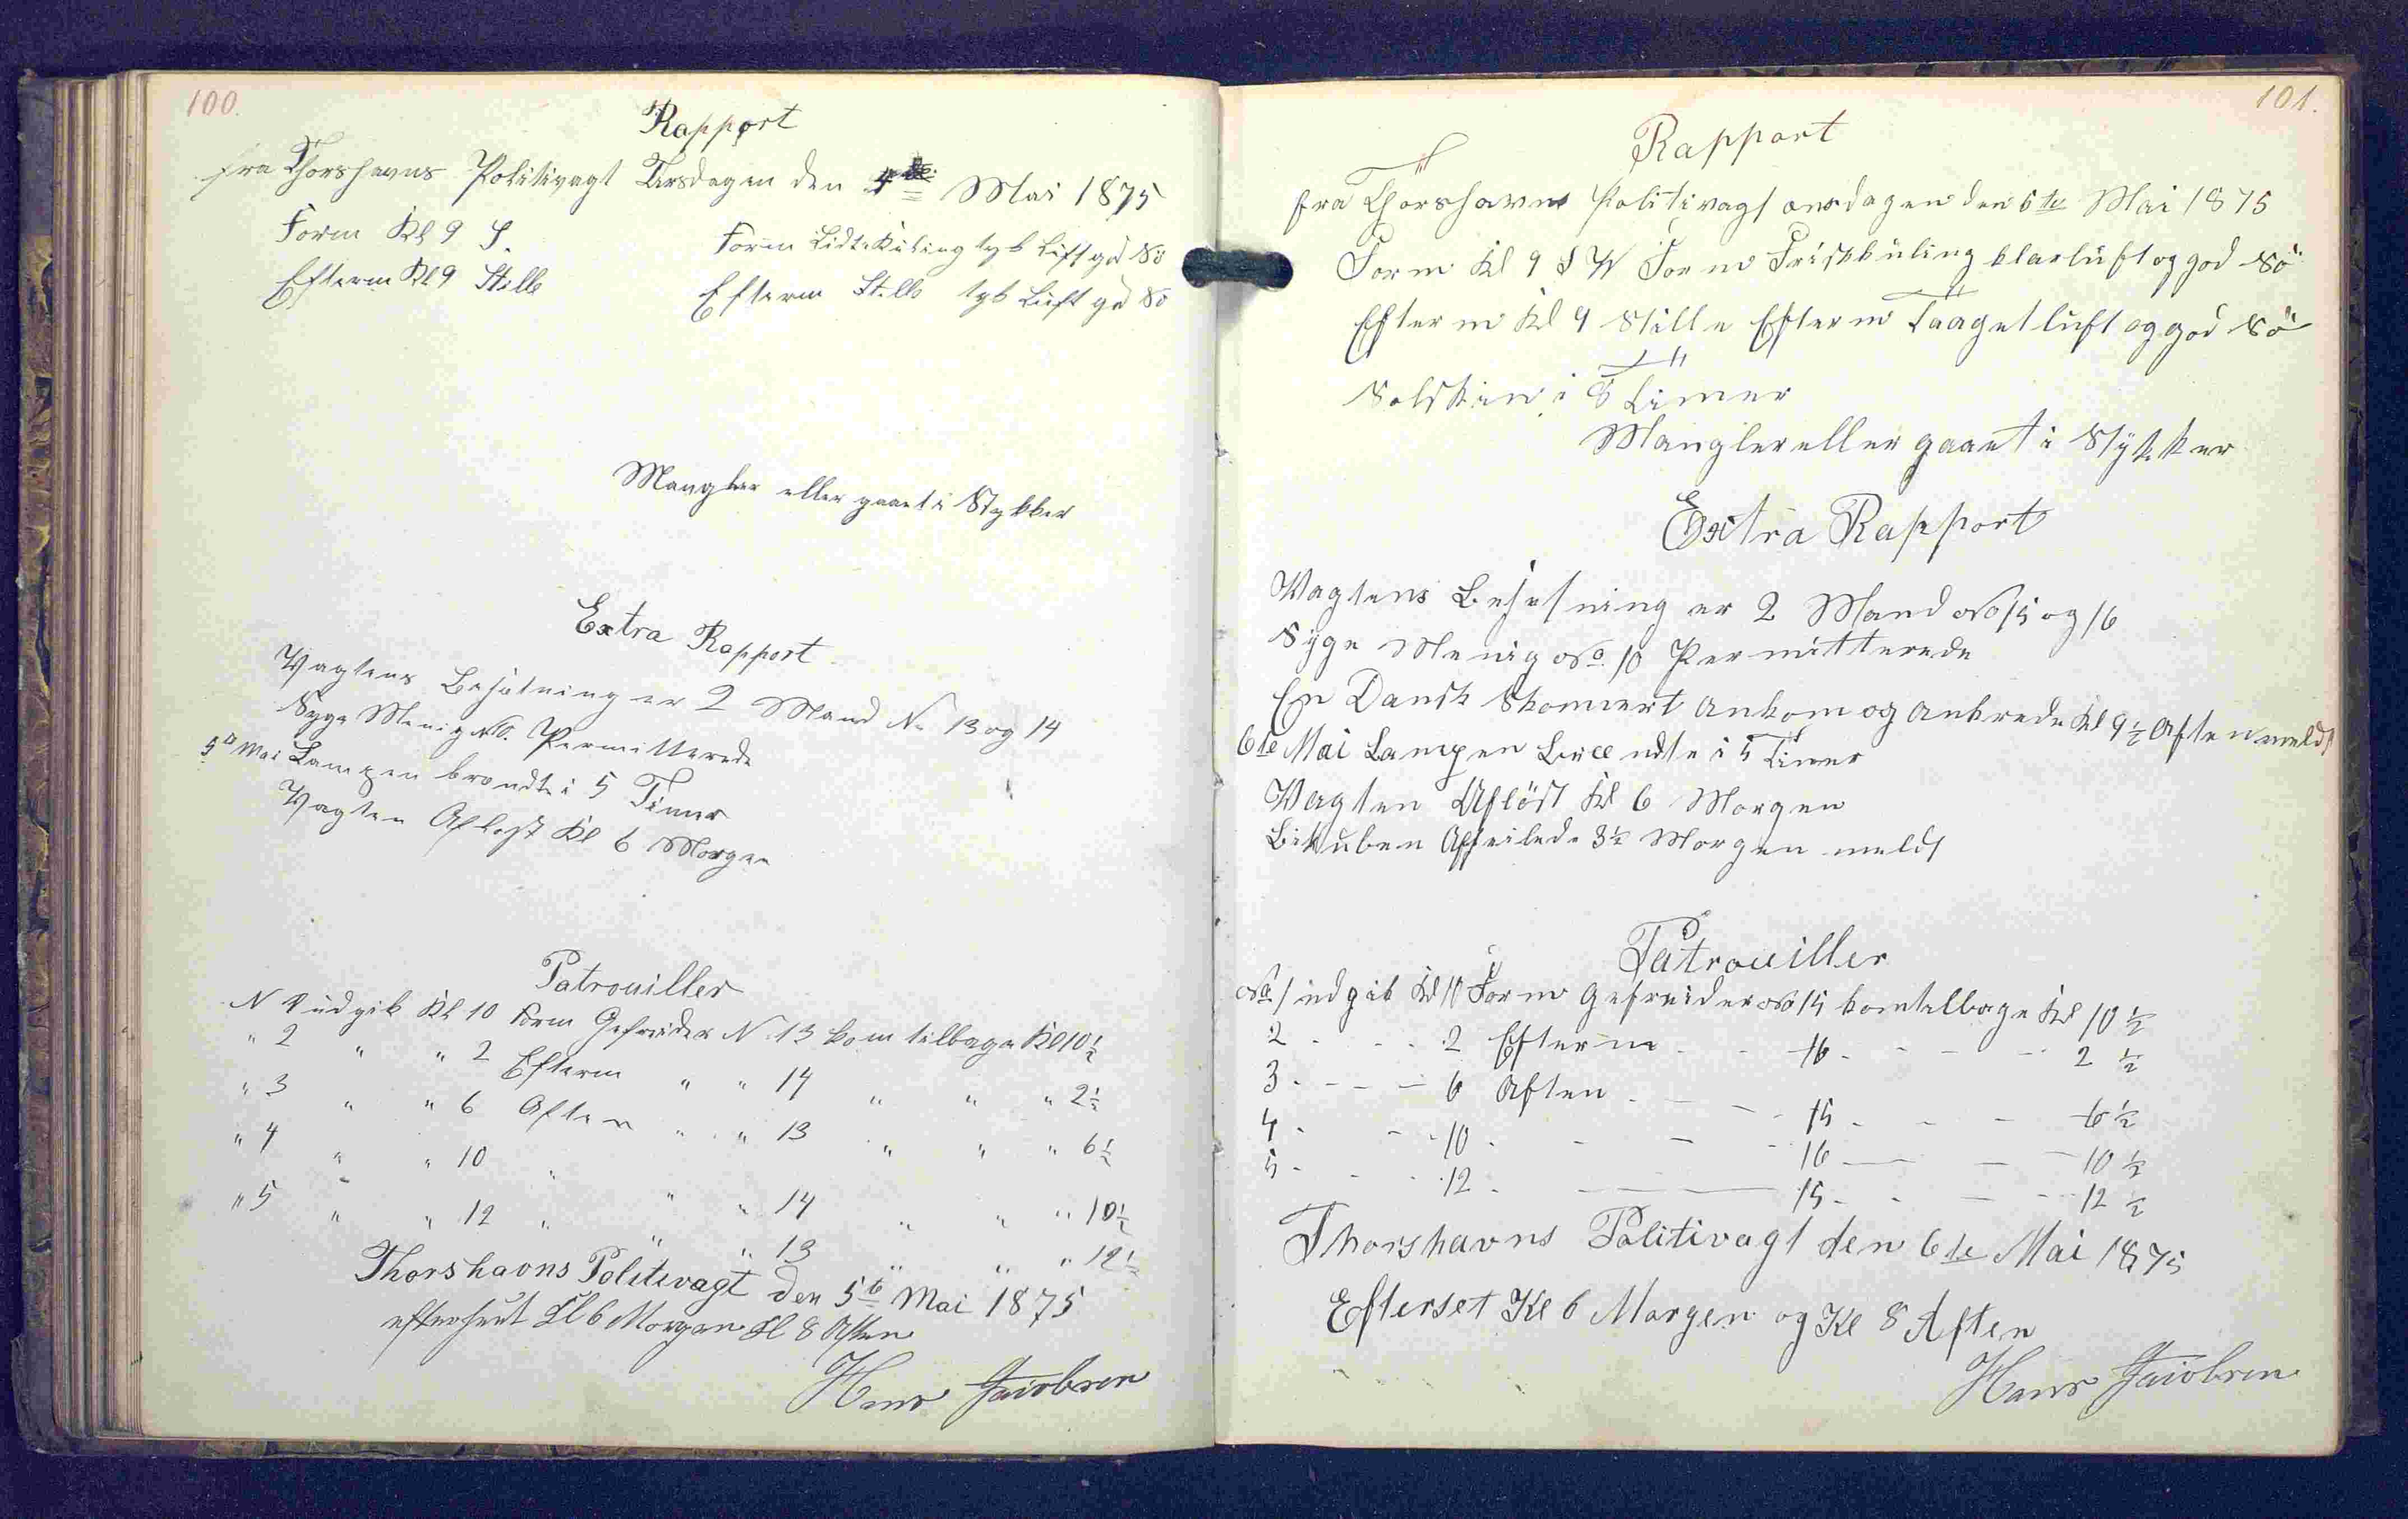 100.
Rapport
fra Thorshavns Politivagt Tirsdagen den 4de Mai 1875
Form Kl 9 S. Form Lidt Kuling tyk Luft god Sö
Efterm Kl 9 Stille Efterm Stille tyk Luft god Sö
Mangler eller gaaet i Stykker
Extra Rapport
Vagtens Besætning er 2 Mand No 13 og 14
Syge Menig No. Permitterede
5te Mai Lampen brændte i 5 Timer
Vagten Aflöst Kl 6 Morgen
Patrouiller
N 1 udgik Kl 10 Form Gefreider N. 13 kom tilbage Kl 10½
" 2 " " 2 Efterm " " 14 " " " 2½
" 3 " " 6 Aften " " 13 " " " 6½
" 4 " " 10 " " " 14 " " " 10½
" 5 " " 12 " " " 13 " " " 12½
Thorshavns Politivagt den 5te Mai 1875
efterseet Kl 6 Morgen Kl 8 Aften
Hans Jacobsen
101.
Rapport
fra Thorshavns Politivagt onsdagen den 5te Mai 1875
Form Kl 9 S W Form Frisk kuling klarluft og god Sö
Efterm Kl 9 Stille Efterm Taaget luft og god Sö
Solskin i 8 Timer
Mangler eller gaaet i Stykker
Extra Rapport
Vagtens Besetning er 2 Mand No 15 og 16
Syge Menig No 10 Permitterede
En Dansk Skonnert Ankom og Ankrede Kl 9½ Aften meldt
6te Mai Lampen Brændte i 5 Timer
Vagten Aflöst Kl 6 Morgen
Bikuben Afseilede 3½ Morgen meldt
Patrouiller
No 1 udgik Kl 10 Form Gefreider No 15 kom telbage Kl 10½
2 - - - 2 Efterm - - 16 - - - 2½
3 - - - 6 Aften - - - 15 - - - 6½
4 - - - 10 - - - - 16 - - - 10½
5 - - - 12 - - - 15 - - - 12½
Thorshavns Politivagt den 6te Mai 1875
Efterset Kl 6 Morgen og Kl 8 Aften
Hans Jacobsen